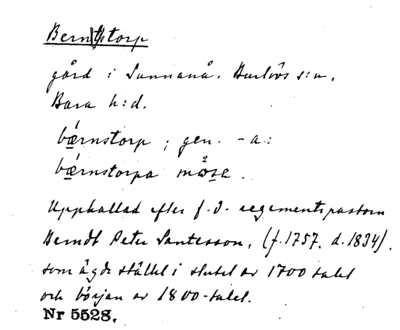 Berntstorp
gård i Sunnanå. Burlövs s:n,
Bara h:d.
bǽrnstorp ; gen. -a:
bǽrnstorpa måse.
Uppkallad efter f.d. regementspastorn
Berndt Peter Santesson, (f. 1757. d. 1834).
som ägde stället i slutet av 1700 talet
och början av 1800-talet.
Nr 5528.